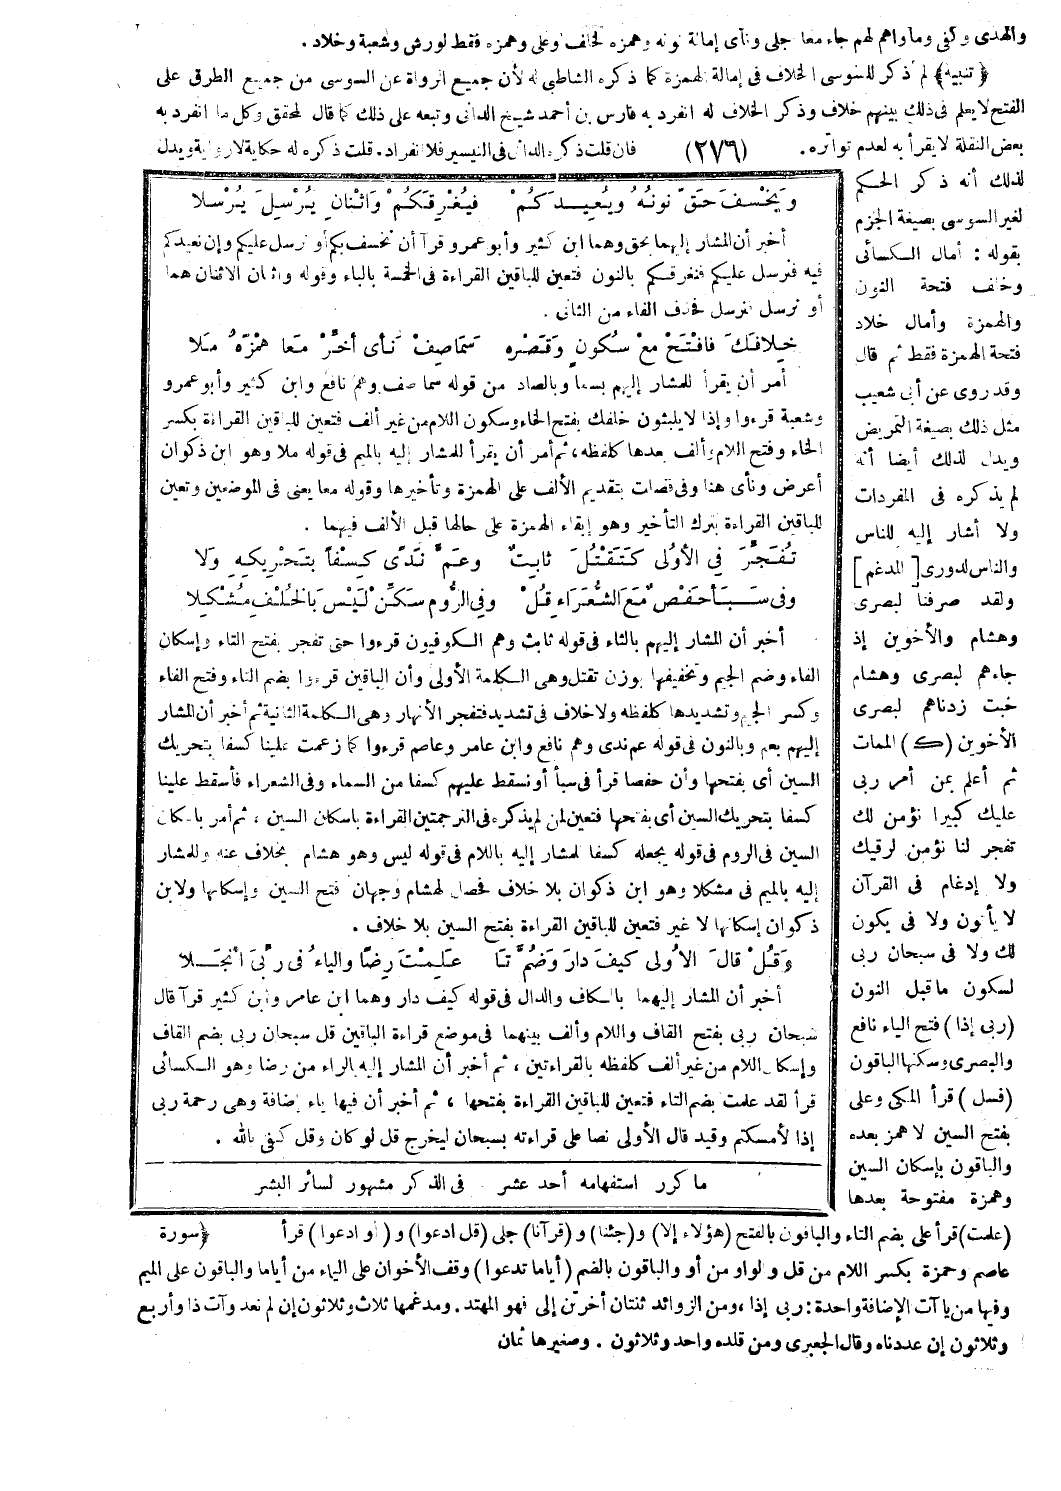 والهدى وكفى ومأواهم لهم جاء معا جلى ونأى إمالة نونه وهمزه لخلف وعلى وهمزه فقط لورش وشعبة وخلاد .
﴿ تنبيه ﴾ لم أذكر للسوسى الخلاف فى إمالة الهمزة كما ذكره الشاطبى له لأن جميع الرواة عن السوسى من جميع الطرق على
الفتح لا يعلم فى ذلك بينهم خلاف وذكر الخلاف له انفرد به فارس بن أحمد شيخ الدانى وتبعه على ذلك كما قال المحقق وكل ما انفرد به
بعض النقلة لا يقرأ به لعدم تواتره . (٢٧٦) فان قلت ذكره الدانى فى التيسير فلا انفراد . قلت ذكره له حكاية لا رواية ويدل
لذلك أنه ذكر الحكم
لغير السوسى بصيغة الجزم
بقوله : أمال الكسائى
وخلف فتحة النون
والهمزة وأمال خلاد
فتحة الهمزة فقط ثم قال
وقد روى عن أبى شعيب
مثل ذلك بصيغة التمريض
ويدل لذلك أيضا أنه
لم يذكره فى المفردات
ولا أشار إليه للناس
والناس لدورى [ المدغم ]
ولقد صرفنا لبصرى
وهشام والأخوين إذ
جاءهم لبصرى وهشام
خبت زدناهم لبصرى
الأخوين ( ك ) الممات
ثم أعلم بمن أمر ربى
عليك كبيرا نؤمن لك
تفجر لنا نؤمن لرقيك
ولا إدغام فى القرآن
لا يأتون ولا فى يكون
لك ولا فى سبحان ربى
لسكون ما قبل النون
( ربى إذا ) فتح الياء نافع
والبصرى وسكنها الباقون
( فسل ) قرأ المكى وعلى
بفتح السين لا همز بعده
والباقون بإسكان السين
وهمزة مفتوحة بعدها
وَيَخْسِفَ حَقّ نُونُهُ وَيُعِيدَكُمْ فَيُغْرِقَكُمْ وَاثْنَانِ يُرْسِلَ يُرْسِلا
أخبر أن المشار إليهما بحق وهما ابن كثير وأبو عمرو قرآ أن نخسف بكم أو نرسل عليكم وإن نعيدكم
فيه فنرسل عليكم فنغرقكم بالنون فتعين للباقين القراءة فى الخمسة بالياء وقوله واثنان الاثنان هما
أو نرسل فنرسل فحذف الفاء من الثانى .
خِلافَكَ فَافْتَحْ مَعْ سُكُونٍ وَقَصْرِهِ سَمَا صِفْ نَأَى أَخِّرْ مَعًا هَمْزَهُ مُلا
أمر أن يقرأ للمشار إليهم بسما وبالصاد من قوله سما صف وهم نافع وابن كثير وأبو عمرو
وشعبة قرءوا وإذا لا يلبثون خلفك بفتح الخاء وسكون اللام من غير ألف فتعين للباقين القراءة بكسر
الخاء وفتح اللام وألف بعدها كلفظه ، ثم أمر أن يقرأ للمشار إليه بالميم فى قوله ملا وهو ابن ذكوان
أعرض ونأى هنا وفى فصلت بتقديم الألف على الهمزة وتأخيرها وقوله معا يعنى فى الموضعين وتعين
للباقين القراءة بترك التأخير وهو إبقاء الهمزة على حالها قبل الألف فيهما .
تُفَجِّرَ فِي الأُولَى كَتَقْتُلَ ثَابِتٌ وَعَمَّ نَدًى كِسْفًا بِتَحْرِيكِهِ وَلا
وَفِى سَبَإٍ حَفْصٌ مَعَ الشُّعَرَاءِ قُلْ وَفِى الرُّومِ سَكِّنْ لَيْسَ بِالْخُلْفِ مُشْكِلا
أخبر أن المشار إليهم بالثاء فى قوله ثابت وهم الكوفيون قرءوا حتى تفجر بفتح التاء وإسكان
الفاء وضم الجيم وتخفيفها بوزن تقتل وهى الكلمة الأولى وأن الباقين قرءوا بضم التاء وفتح الفاء
وكسر الجيم وتشديدها كلفظه ولا خلاف فى تشديد فتفجر الأنهار وهى الكلمة الثانية ثم أخبر أن المشار
إليهم بعم وبالنون فى قوله عم ندى وهم نافع وابن عامر وعاصم قرءوا كما زعمت علينا كسفا بتحريك
السين أى بفتحها وأن حفصا قرأ فى سبأ أو نسقط عليهم كسفا من السماء وفى الشعراء فأسقط علينا
كسفا بتحريك السين أى بفتحها فتعين لمن لم يذكره فى الترجمتين القراءة باسكان السين ، ثم أمر باسكان
السين فى الروم فى قوله يجعله كسفا للمشار إليه باللام فى قوله ليس وهو هشام بخلاف عنه وللمشار
إليه بالميم فى مشكلا وهو ابن ذكوان بلا خلاف فحصل لهشام وجهان فتح السين وإسكانها ولابن
ذكوان إسكانها لا غير فتعين للباقين القراءة بفتح السين بلا خلاف .
وَقُلْ قَالَ الأُولَى كَيْفَ دَارَ وَضُمَّ تَا عَلِمْتَ رِضًا وَالْيَاءُ فِى رَبِّىَ انْجَلا
أخبر أن المشار إليهما بالكاف والدال فى قوله كيف دار وهما ابن عامر وابن كثير قرآ قال
سبحان ربى بفتح القاف واللام وألف بينهما فى موضع قراءة الباقين قل سبحان ربى بضم القاف
وإسكان اللام من غير ألف كلفظه بالقراءتين ، ثم أخبر أن المشار إليه بالراء من رضا وهو الكسائى
قرأ لقد علمت بضم التاء فتعين للباقين القراءة بفتحها ، ثم أخبر أن فيها ياء إضافة وهى رحمة ربى
إذا لأمسكتم وقيد قال الأولى نصا على قراءته بسبحان ليخرج قل لو كان وقل كفى بالله .
ما كرر استفهامه أحد عشر فى الذكر مشهور لسائر البشر
( علمت ) قرأ على بضم التاء والباقون بالفتح ( هؤلاء إلا ) و ( جئنا ) و ( قرآنا ) جلى ( قل ادعوا ) و ( أو ادعوا ) قرأ ﴿ سورة
عاصم وحمزة بكسر اللام من قل والواو من أو والباقون بالضم ( أياما تدعوا ) وقف الأخوان على الياء من أياما والباقون على الميم
وفيها من ياآت الإضافة واحدة : ربى إذا ، ومن الزوائد ثنتان أخرتن إلى فهو المهتد . ومدغمها ثلاث وثلاثون إن لم نعد وآت ذا وأربع
وثلاثون إن عددناه وقال الجعبرى ومن قلده واحد وثلاثون . وصغيرها ثمان